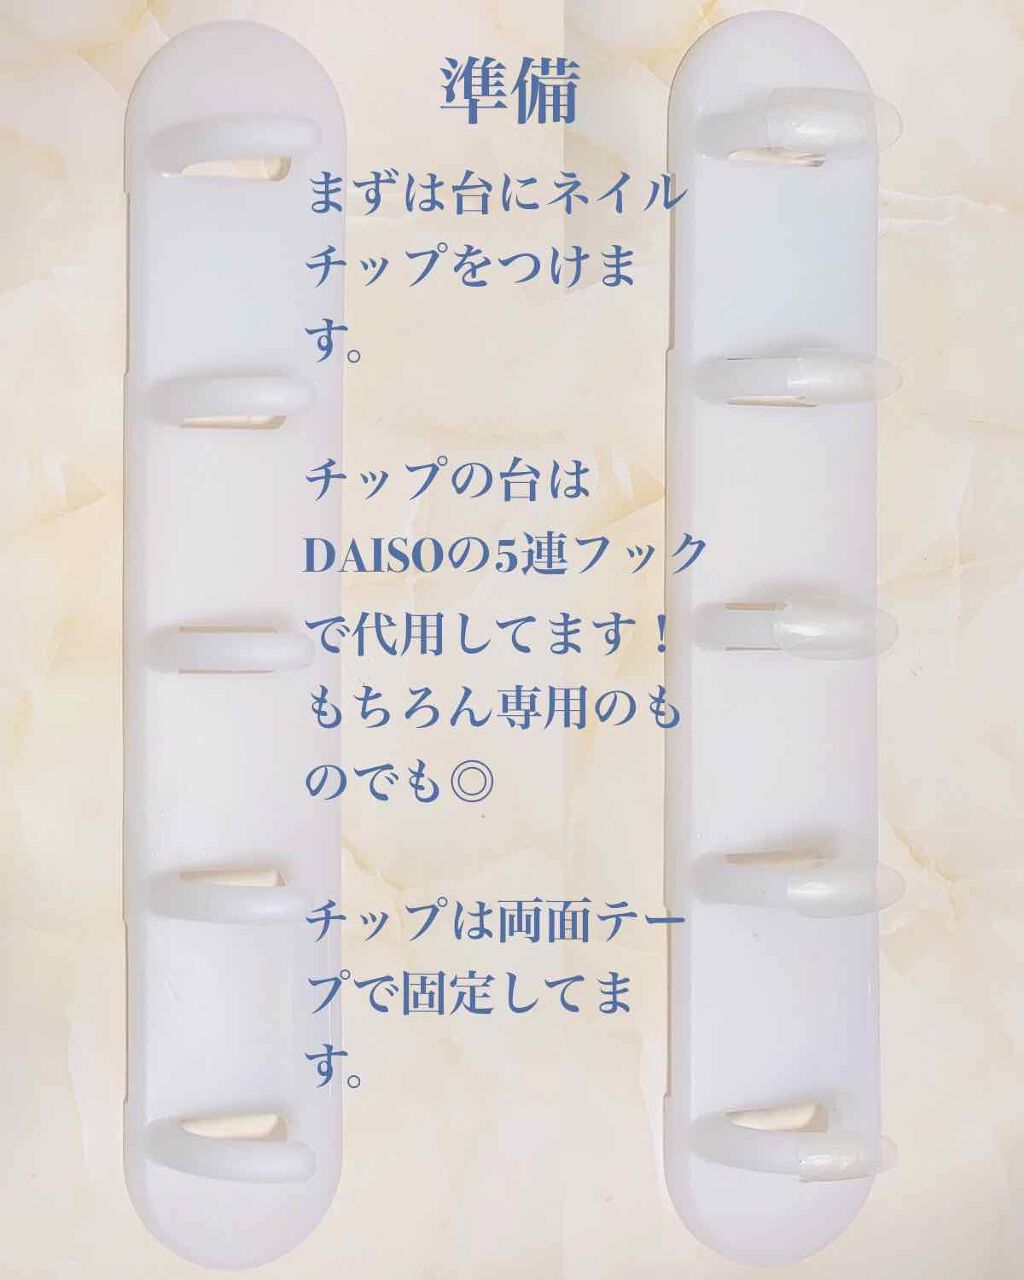 準備
まずは台にネイル
チップをつけま
す。
チップの台は
DAISOの5連フック
で代用してます！
もちろん専用のも
のでも◎
チップは両面テー
プで固定してま
す。